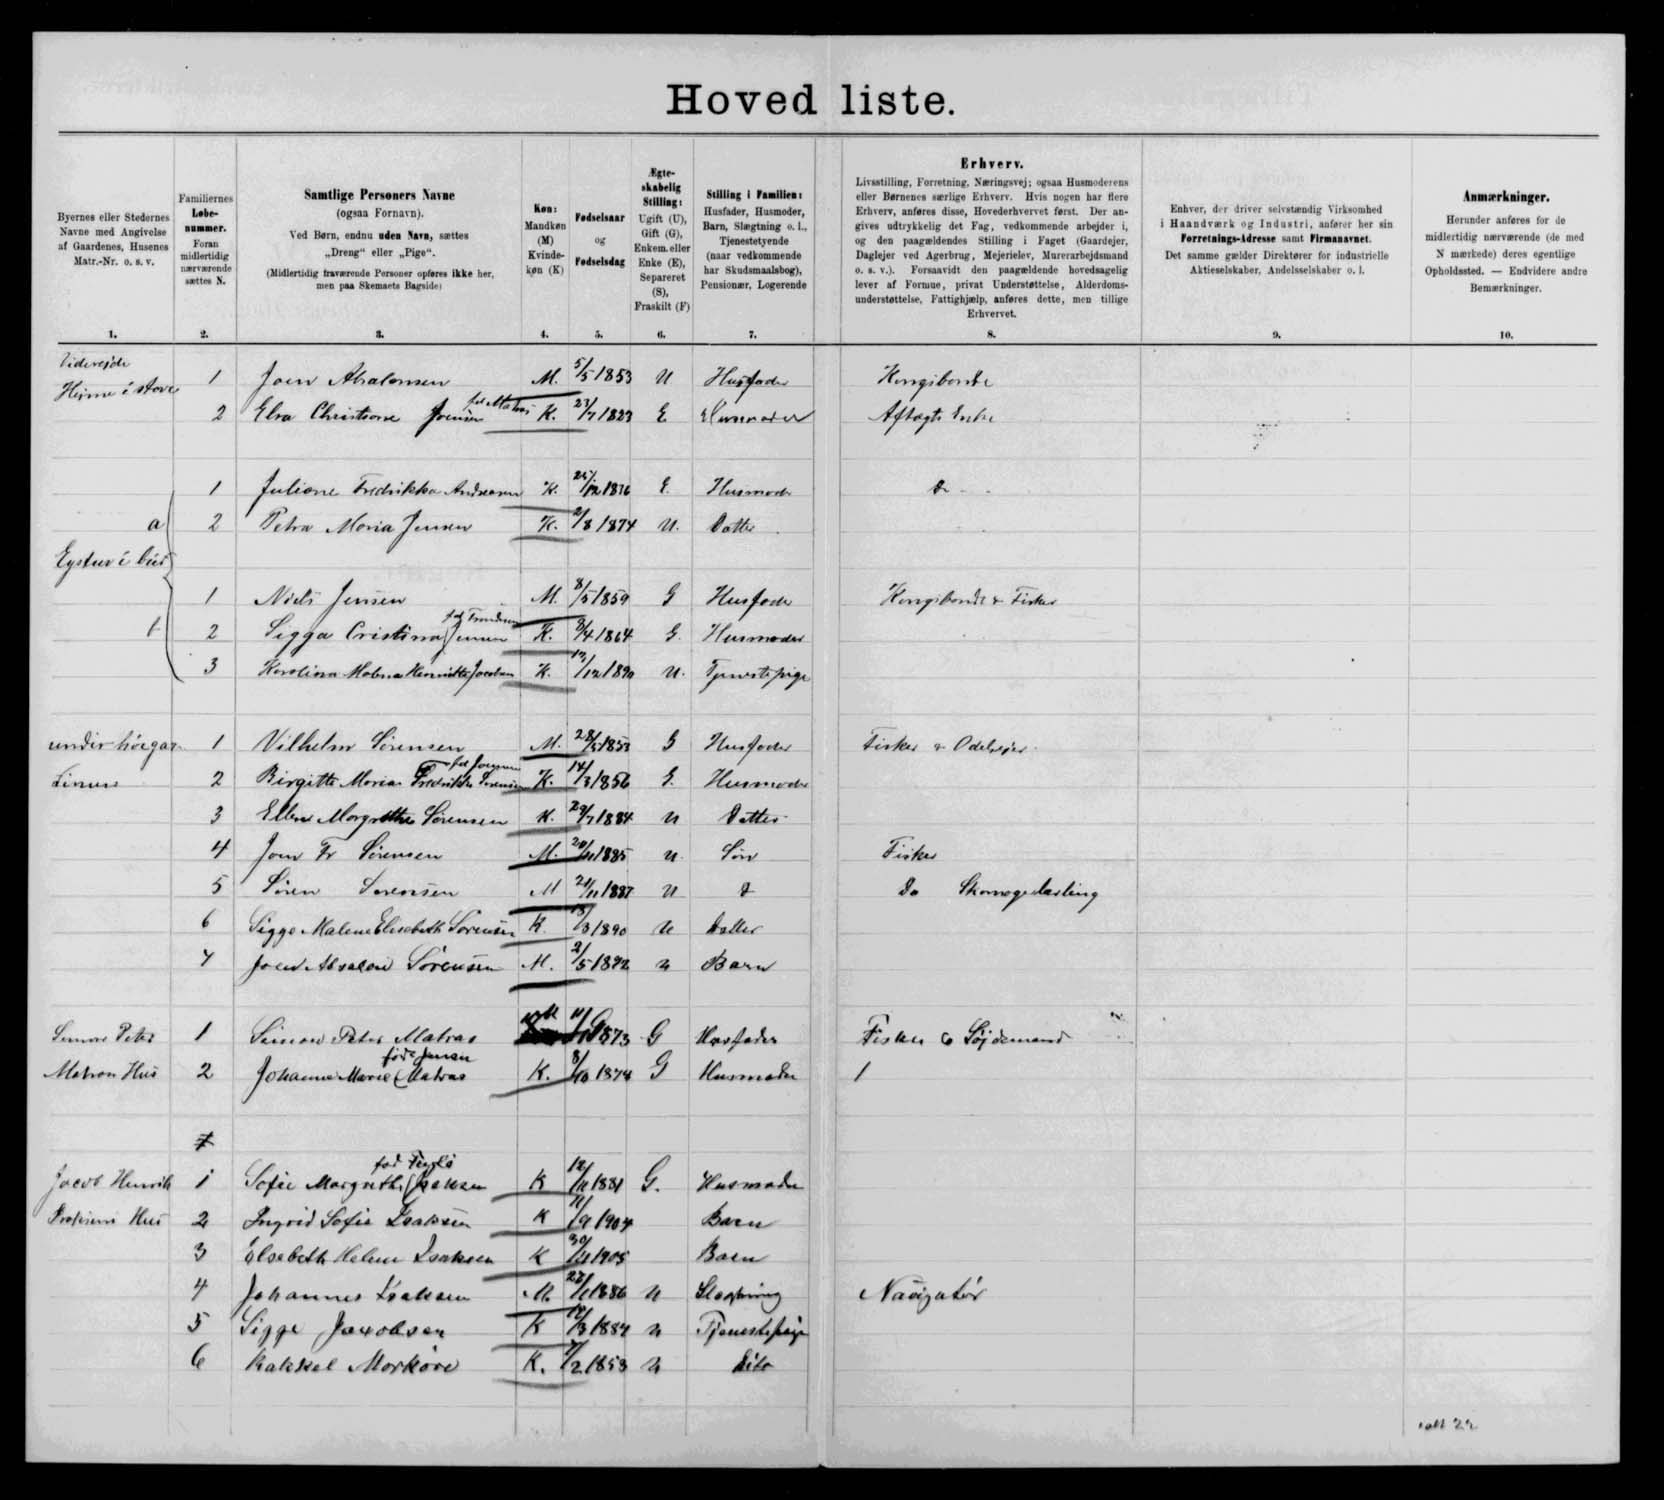 Hoved liste.
Byernes eller Stedernes
Navne med Angivelse
af Gaardenes, Husenes
Matr.-Nr. o. s. v.
1.
Familiernes
Løbe-
nummer.
Foran
midlertidig
nærværende
sættes N.
2.
Samtlige Personers Navne
(ogsaa Fornavn).
Ved Børn, endnu uden Navn, sættes
„Dreng“ eller „Pige“.
(Midlertidig fraværende Personer opføres ikke her,
men paa Skemaets Bagside)
3.
Køn:
Mandkøn
(M)
Kvinde-
køn (K)
4.
Fødselsaar
og
Fødselsdag
5.
Ægte-
skabelig
Stilling:
Ugift (U),
Gift (G),
Enkem. eller
Enke (E),
Separeret
(S),
Fraskilt (F)
6.
Stilling i Familien:
Husfader, Husmoder,
Barn, Slægtning o. l.,
Tjenestetyende
(naar vedkommende
har Skudsmaalsbog),
Pensionær, Logerende
7.
Erhverv.
Livsstilling, Forretning, Næringsvej; ogsaa Husmoderens
eller Børnenes særlige Erhverv. Hvis nogen har flere
Erhverv, anføres disse, Hovederhvervet først. Der an-
gives udtrykkelig det Fag, vedkommende arbejder i,
og den paagældendes Stilling i Faget (Gaardejer,
Daglejer ved Agerbrug, Mejerielev, Murerarbejdsmand
o. s. v.). Forsaavidt den paagældende hovedsagelig
lever af Formue, privat Understøttelse, Alderdoms-
understøttelse, Fattighjælp, anføres dette, men tillige
Erhvervet.
8.
Enhver, der driver selvstændig Virksomhed
i Haandværk og Industri, anfører her sin
Forretnings-Adresse samt Firmanavnet.
Det samme gælder Direktører for industrielle
Aktieselskaber, Andelsselskaber o. l.
9.
Anmærkninger.
Herunder anføres for de
midlertidig nærværende (de med
N mærkede) deres egentlige
Opholdssted. — Endvidere andre
Bemærkninger.
10.
Videreide
Heima i stove 1 Joen Absalonsen M. 5/5 1853 U Husfader Kongsbonde
2 Elsa Christiane Joensen fød Matras K. 23/7 1823 E Husmoder Aftægts Enke
1 Juliane Fredrikka Andreasen K. E. Husmoder Do
a 2 Petra Maria Jensen K. 2/8 1874 U. Datter
Eystur i búð
1 Niels Jensen M. 8/5 1859 G Husfader Kongsbonde & Fisker
2 Sigga Cristina Jensen K. 3/4 1864 G. Husmoder
3 Karolina Malena Henrietta Jacobsen K. U. Tjenestepige
1 Vilhelm Sørensen M. 1853 G Husfader Fisker &
2 Birgitte Maria Fredrikke Sørensen fød Joensen K. 14/3 1856 G. Husmoder
3 Ellen Margrethe Sørensen K. 29/7 1884 U Datter
4 Joen Fr Sørensen M. 1885 U. Søn Fisker
5 Søren Sørensen M 1887 U Do
6 Sigge Malene Elisebeth Sørensen K. 18/3 1890 U Datter
7 Joen Absalon Sørensen M. 2/5 U Barn
Simon Peter 1 Simon Peter Matras M 1873 G Husfader Fisker & Søjdemand
Matras Hus 2 Johanne Marie Matras føde Jensen K. 8/10 1874 G Husmoder
Jacob Henrik 1 Sofie Margrethe Isaksen K 12/11 1881 G. Husmoder
Hus 2 Ingrid Sofie Isaksen K 11/9 1904 Barn
3 Elsebeth Helene Isaksen K 30/11 1905 Barn
4 Johannes Isaksen M. 1886 U Slægtning Navigatør
5 Sigge Jacobsen K 1884 U Tjenestepige
6 Rakkel Morkøre K. 7/2 1858 U Dito
ialt 22